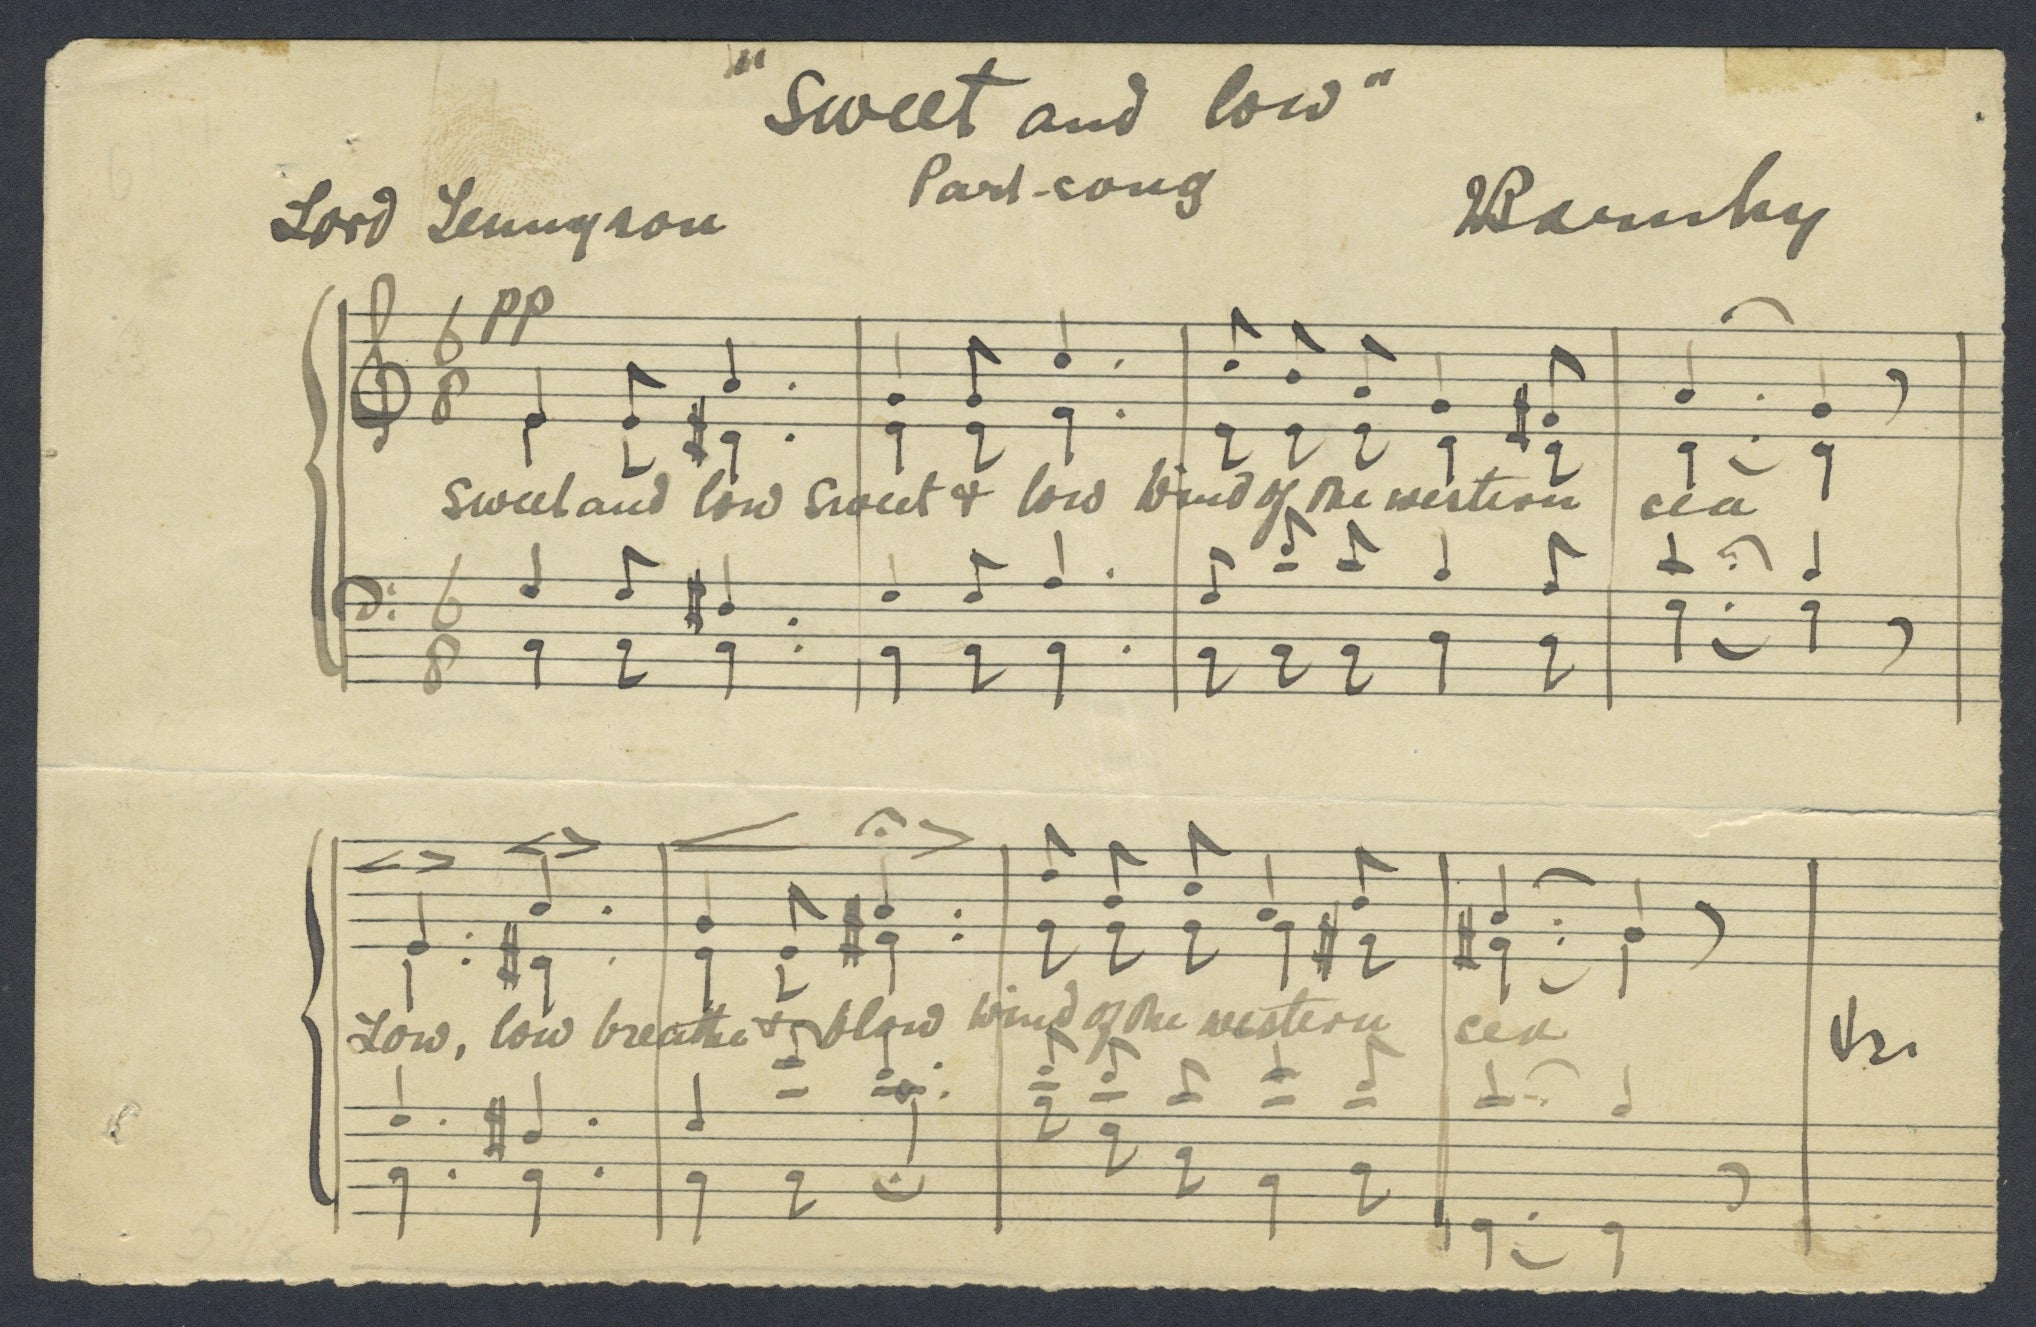 "Sweet and low"
Part-song
Lord Tennyson Barnby
pp
6 8
Sweet and low Sweet & low Wind of the western sea
6 8
Low, low breathe & blow Wind of the western sea